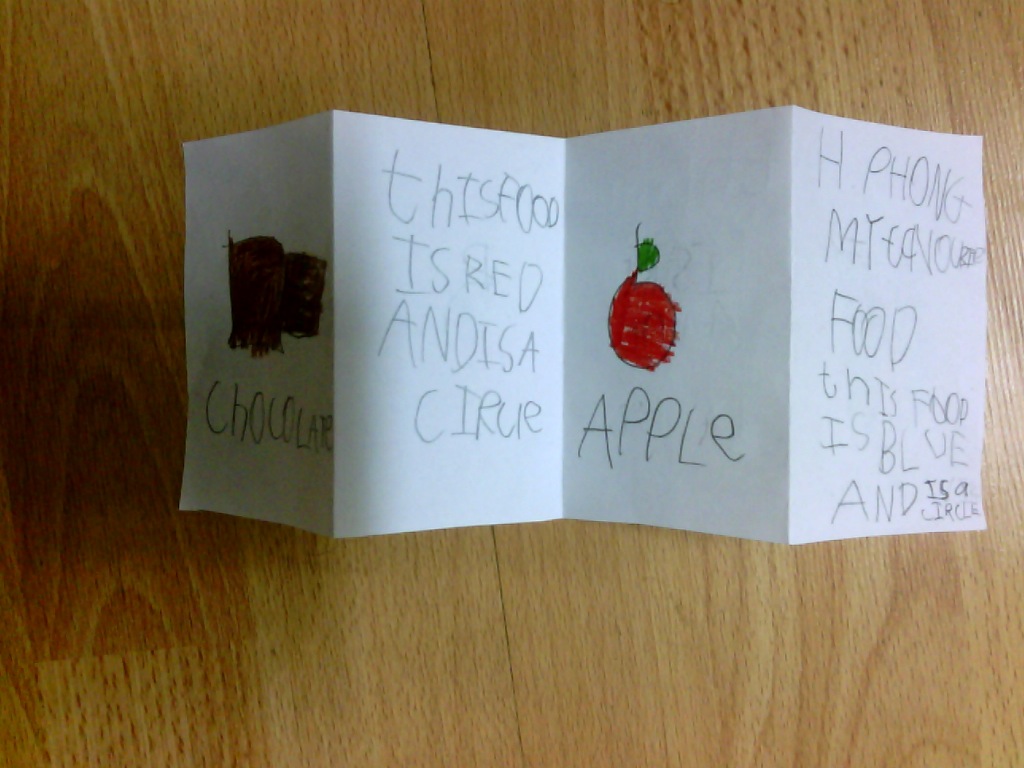 ChOCOLATe
thISFOOD
IS RED
ANDISA
CIRCLE
APPLe
H PHONG
MY FAVOURITE
FOOD
thIS FOOD
IS BLUE
AND IS a
CIRCLE